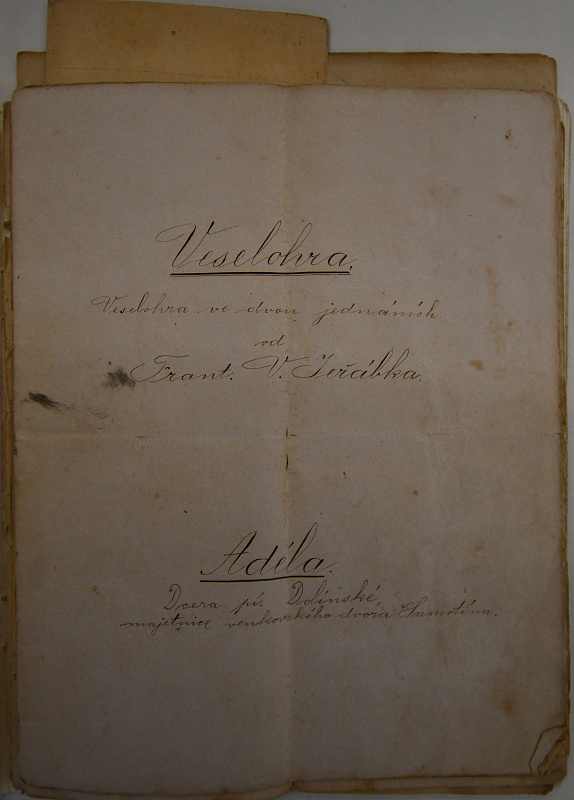 Veselohra.
Veselohra ve dvou jednáních.
od
Frant. V. Jeřábka.
Adéla.
Dcera pí. Dolínské,
majetnice venkovského dvora Samotína.